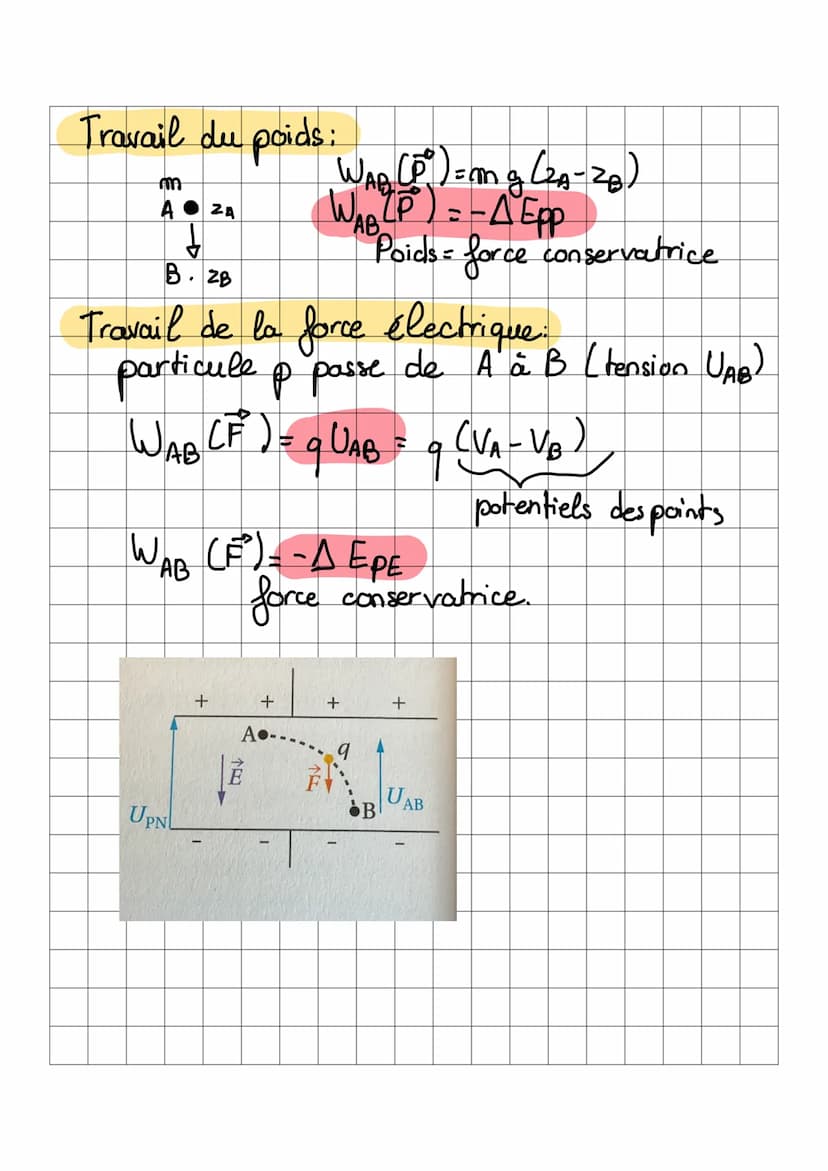 Travail du poids :
m
A ● zA
B . zB
W_AB (P⃗) = m g (zA - zB)
W_AB (P⃗) = -Δ Epp
Poids = force conservatrice
Travail de la force électrique :
particule p passe de A à B (tension U_AB)
W_AB (F⃗) = q U_AB = q (V_A - V_B)
potentiels des points
W_AB (F⃗) = -Δ E_PE
force conservatrice.
+ + + +
A
q
E⃗ F⃗
U_AB
B
U_PN
- - - -